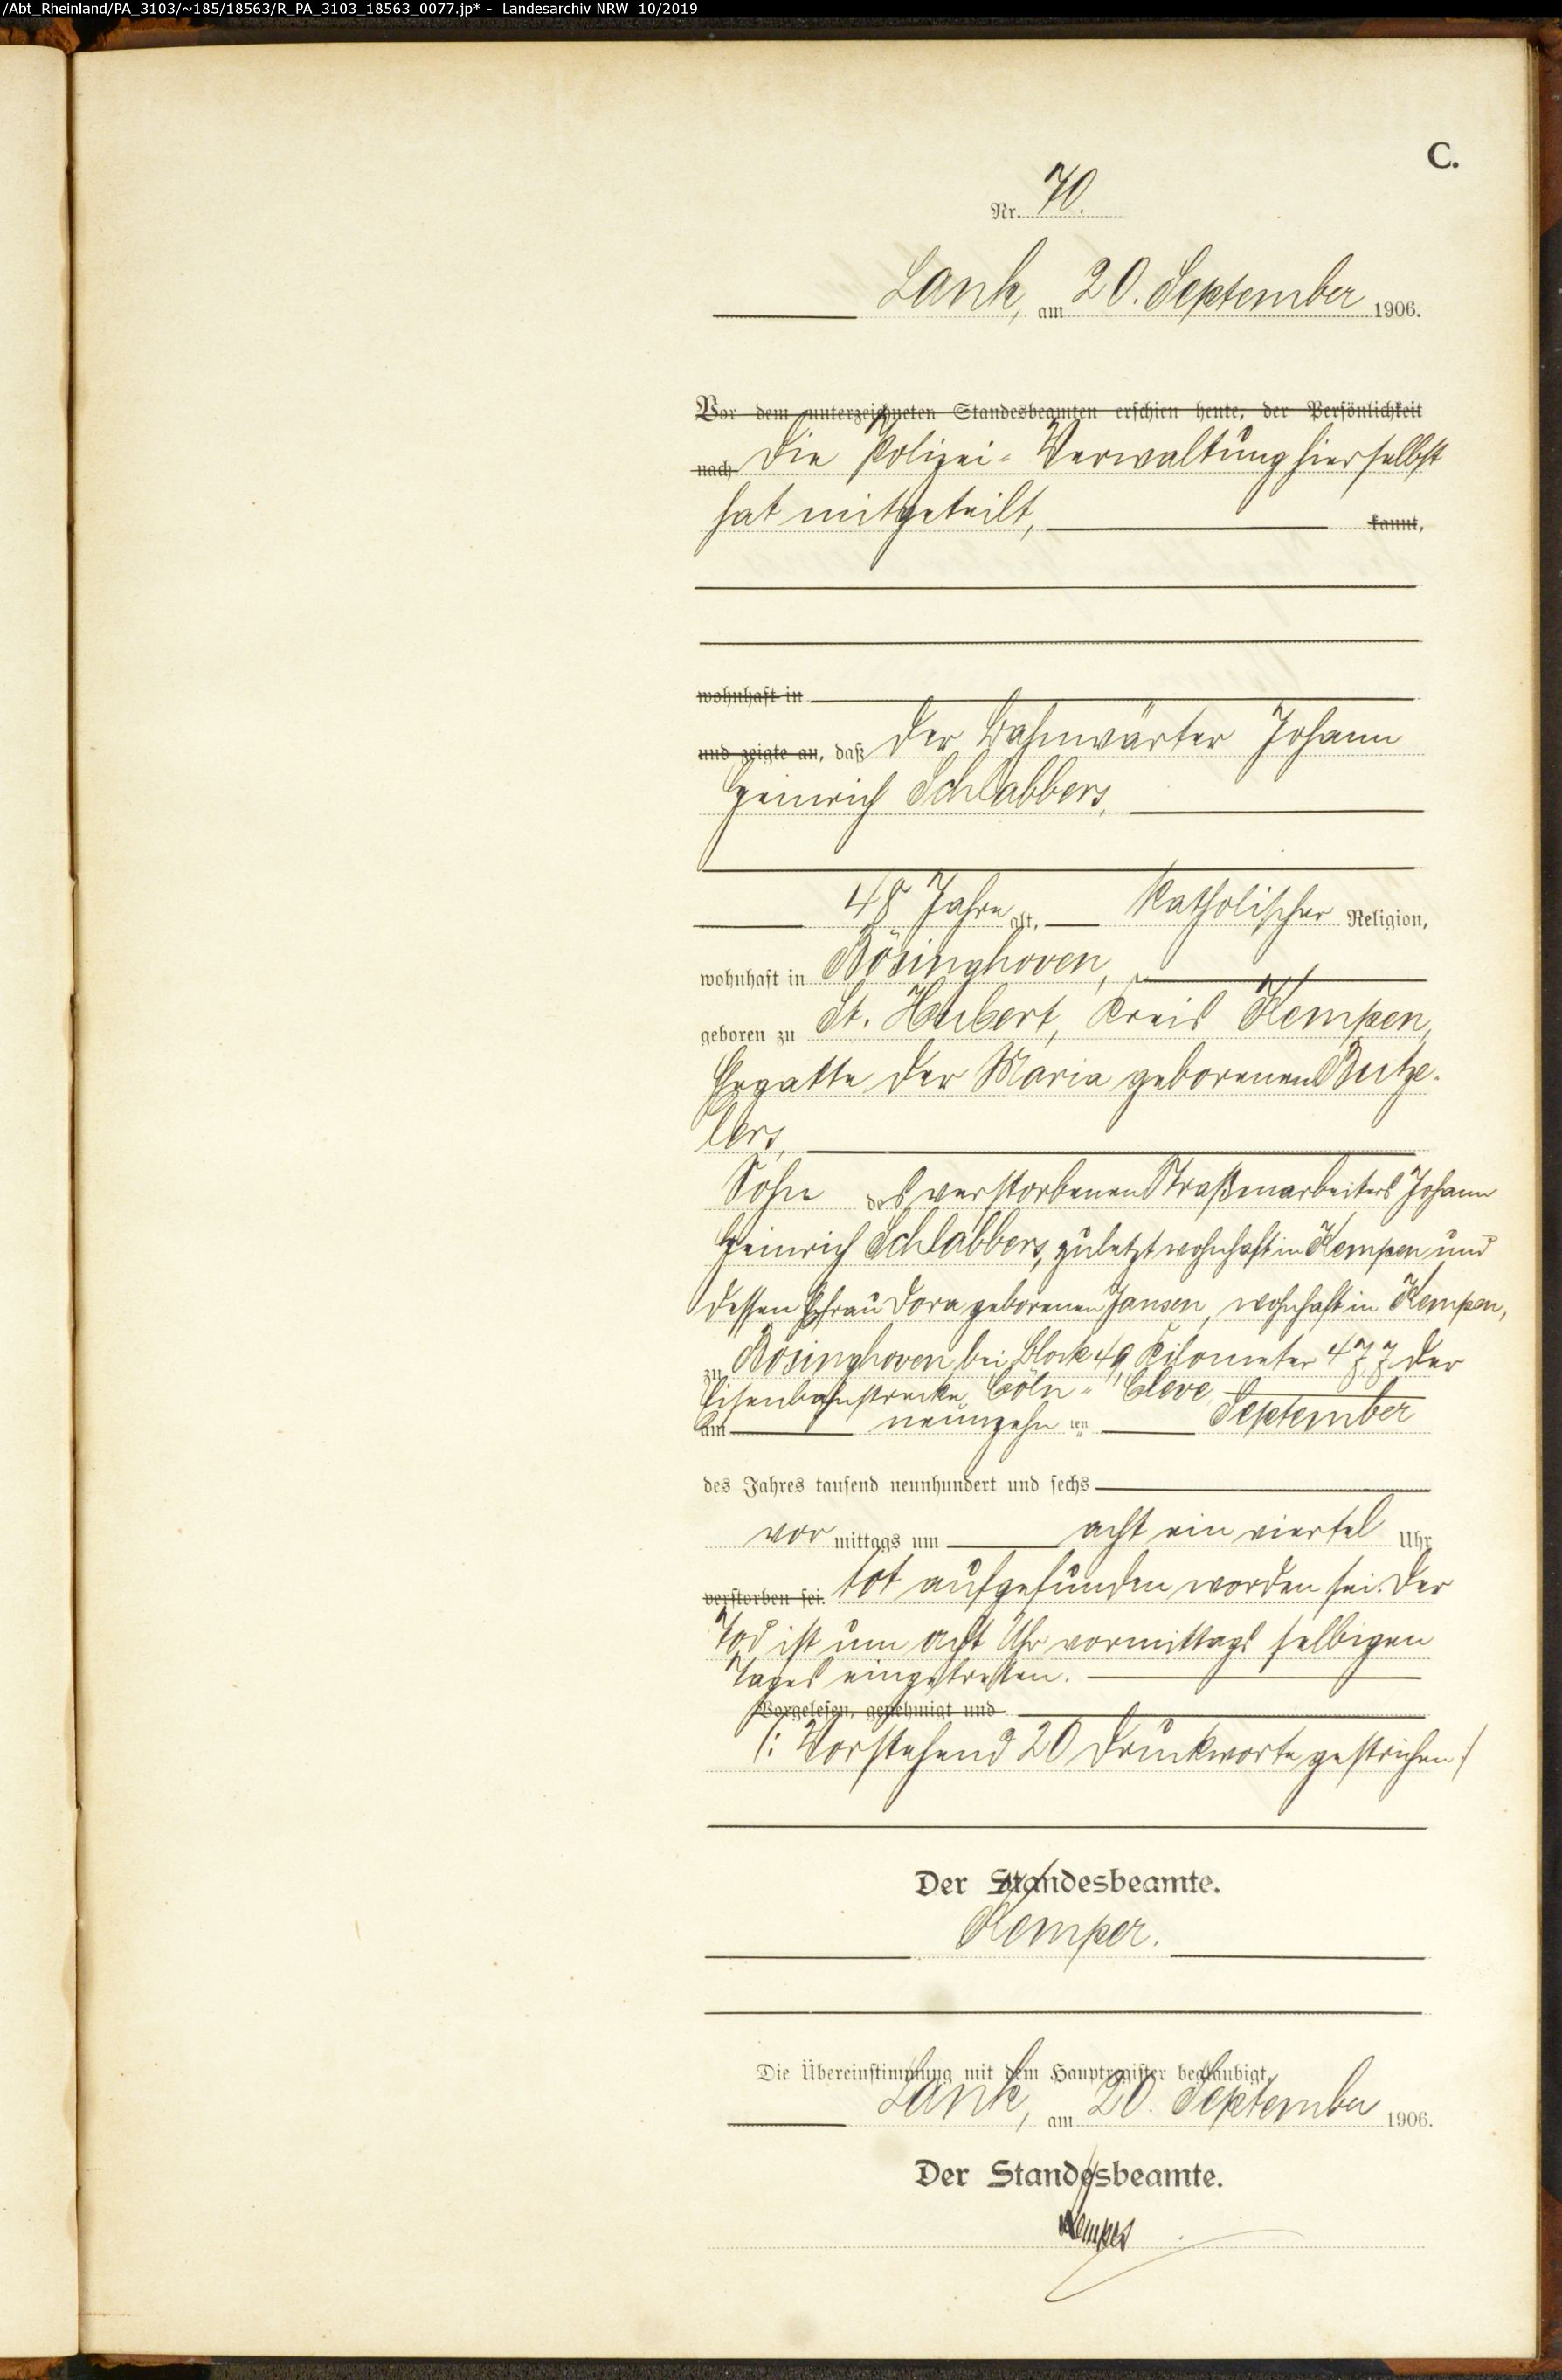 /Abt_Rheinland/PA_3103/~185/18563/R_PA_3103_18563_0077.jp* - Landesarchiv NRW 10/2019
C.
Nr. 70.
Lank, am 20. September 1906.
Vor dem unterzeichneten Standesbeamten erschien heute, der Persönlichkeit
nach Die Polizei-Verwaltung hierselbst
hat mitgeteilt, kannt,
wohnhaft in
und zeigte an, daß der Bahnwärter Johann
Heinrich Schlabbers,
48 Jahre alt, katholischer Religion,
wohnhaft in Bösinghoven,
geboren zu St. Hubert, Kreis Kempen,
Ehegatte der Maria geborenen Butze-
lers,
Sohn des verstorbenen Straßenarbeiters Johann
Heinrich Schlabbers, zuletzt wohnhaft in Kempen und
dessen Ehefrau Dora geborenen Jansen, wohnhaft in Kempen,
zu Bösinghoven bei Block 49, Kilometer 47,7 der
Eisenbahnstrecke Cöln-Cleve,
am neunzehn ten September
des Jahres tausend neunhundert und sechs
vor mittags um acht ein viertel Uhr
verstorben sei. tot aufgefunden worden sei. Der
Tod ist um acht Uhr vormittags selbigen
Tages eingetreten.
Vorgelesen, genehmigt und
(: Vorstehend 20 Druckworte gestrichen :)
Der Standesbeamte.
Kemper.
Die Übereinstimmung mit dem Hauptregister beglaubigt.
Lank, am 20. September 1906.
Der Standesbeamte.
Kemper